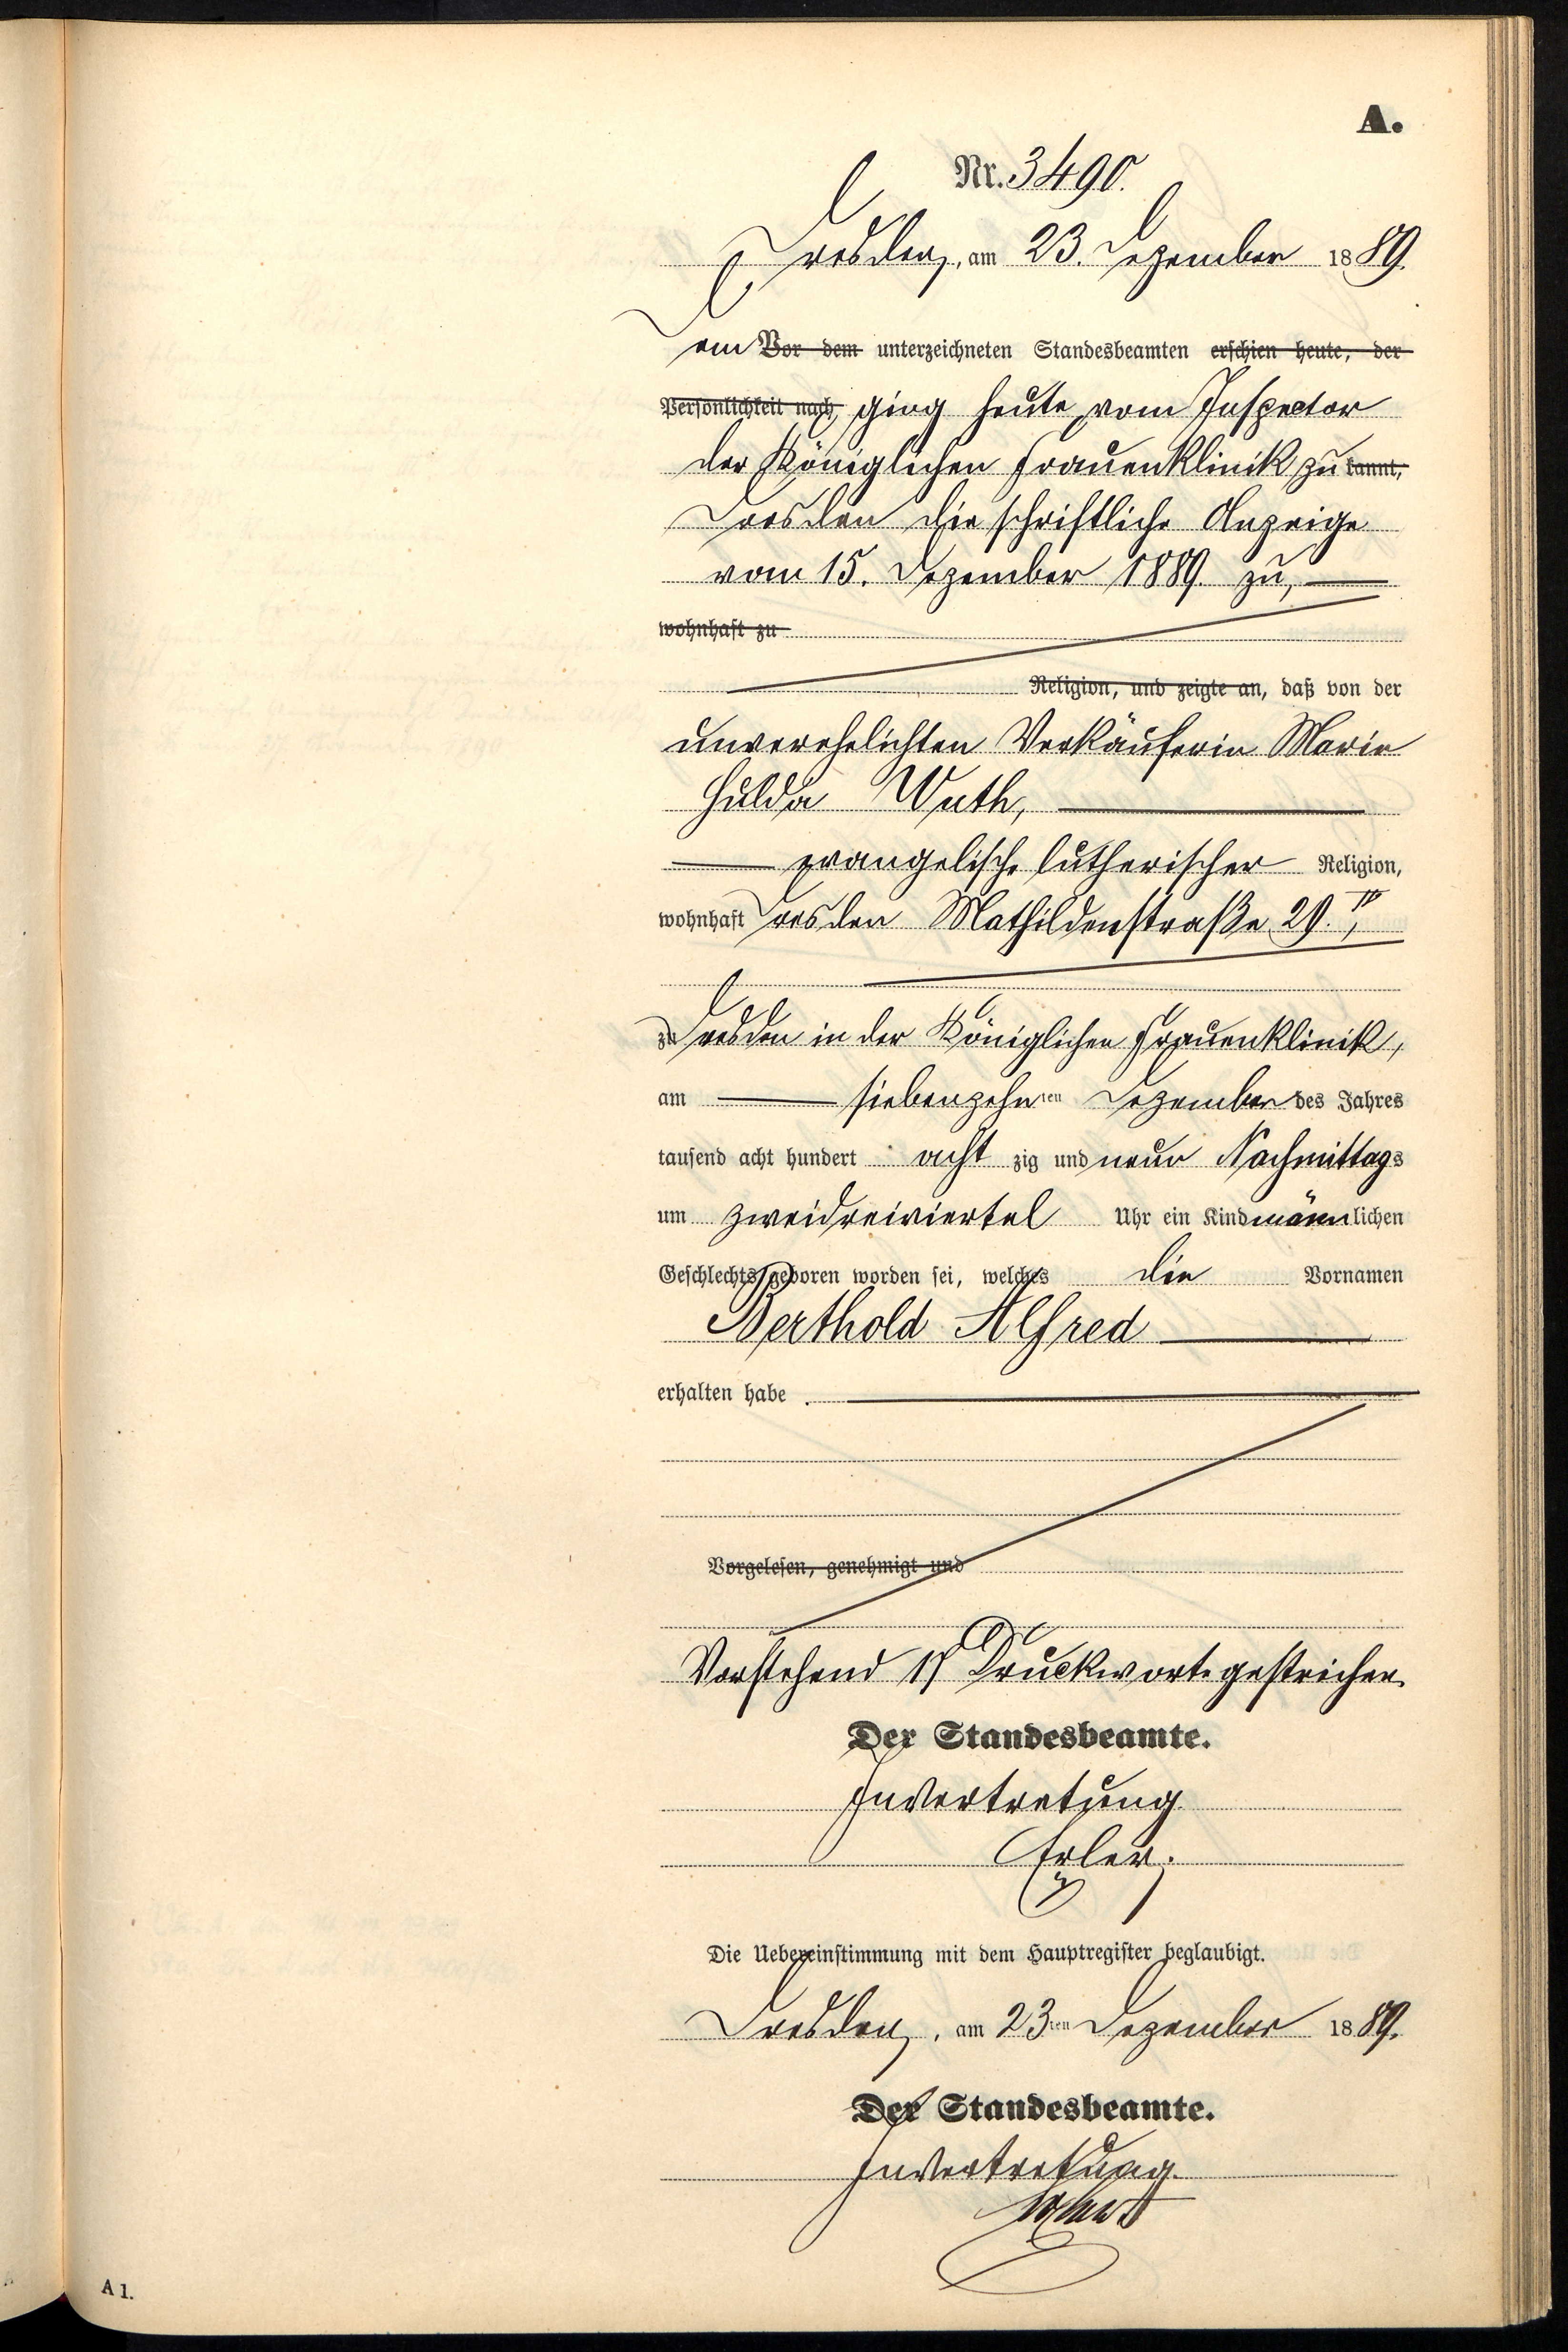 A.
Nr. 3490.
Dresden, am 23. Dezember 1889.
Dem Vor dem unterzeichneten Standesbeamten erschien heute, der
Persönlichkeit nach, ging heute vom Inspector
der Königlichen Frauenklinik zu kannt,
Dresden die schriftliche Anzeige
vom 15. Dezember 1889 zu,
wohnhaft zu
Religion, und zeigte an, daß von der
unverehelichten Verkäuferin Marie
Hulda Wuth,
evangelisch lutherischer Religion,
wohnhaft Dresden Mathildenstraße 29. IV,
zu Dresden in der Königlichen Frauenklinik,
am siebenzehnten Dezember des Jahres
tausend acht hundert acht zig und neun Nachmittags
um zweidreiviertel Uhr ein Kind männlichen
Geschlechts geboren worden sei, welches die Vornamen
Berthold Alfred
erhalten habe.
Vorgelesen, genehmigt und
Vorstehend 17 Druckworte gestrichen.
Der Standesbeamte.
In Vertretung
Erler.
Die Uebereinstimmung mit dem Hauptregister beglaubigt.
Dresden, am 23ten Dezember 1889.
Der Standesbeamte.
In Vertretung.
A 1.